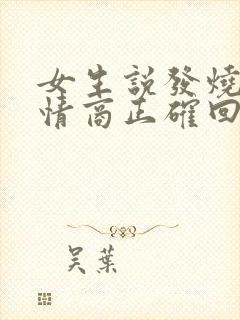 女生説發燒
情商正確回
吴葉